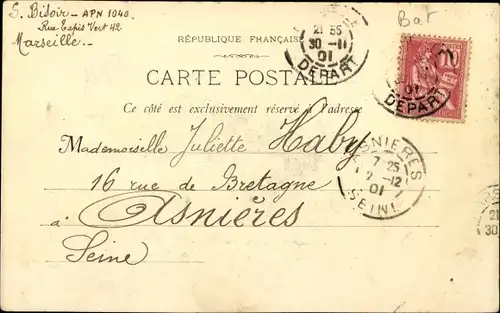 S. Bisoir - APN 1040.
Rue Tapis Vert 42
Marseille.-
Bat
RÉPUBLIQUE FRANÇAISE
21 55
30 -11
01
DÉPART
10
01
DÉPART
CARTE POSTALE
Ce côté est exclusivement réservé à l'adresse
Mademoiselle Juliette Haby
16 rue de Bretagne
à Asnières
Seine
ASNIERES
7 25
2 -12
01
SEINE
21
30